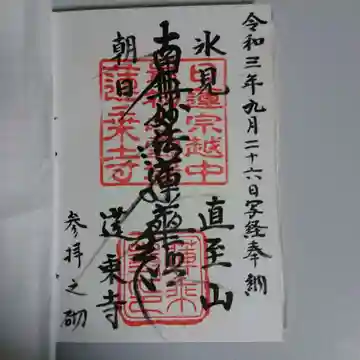 令和三年九月二十六日写経奉納
氷見 直至山
南無妙法蓮華経
朝日 蓮乗寺
参拝之砌
日蓮宗越中